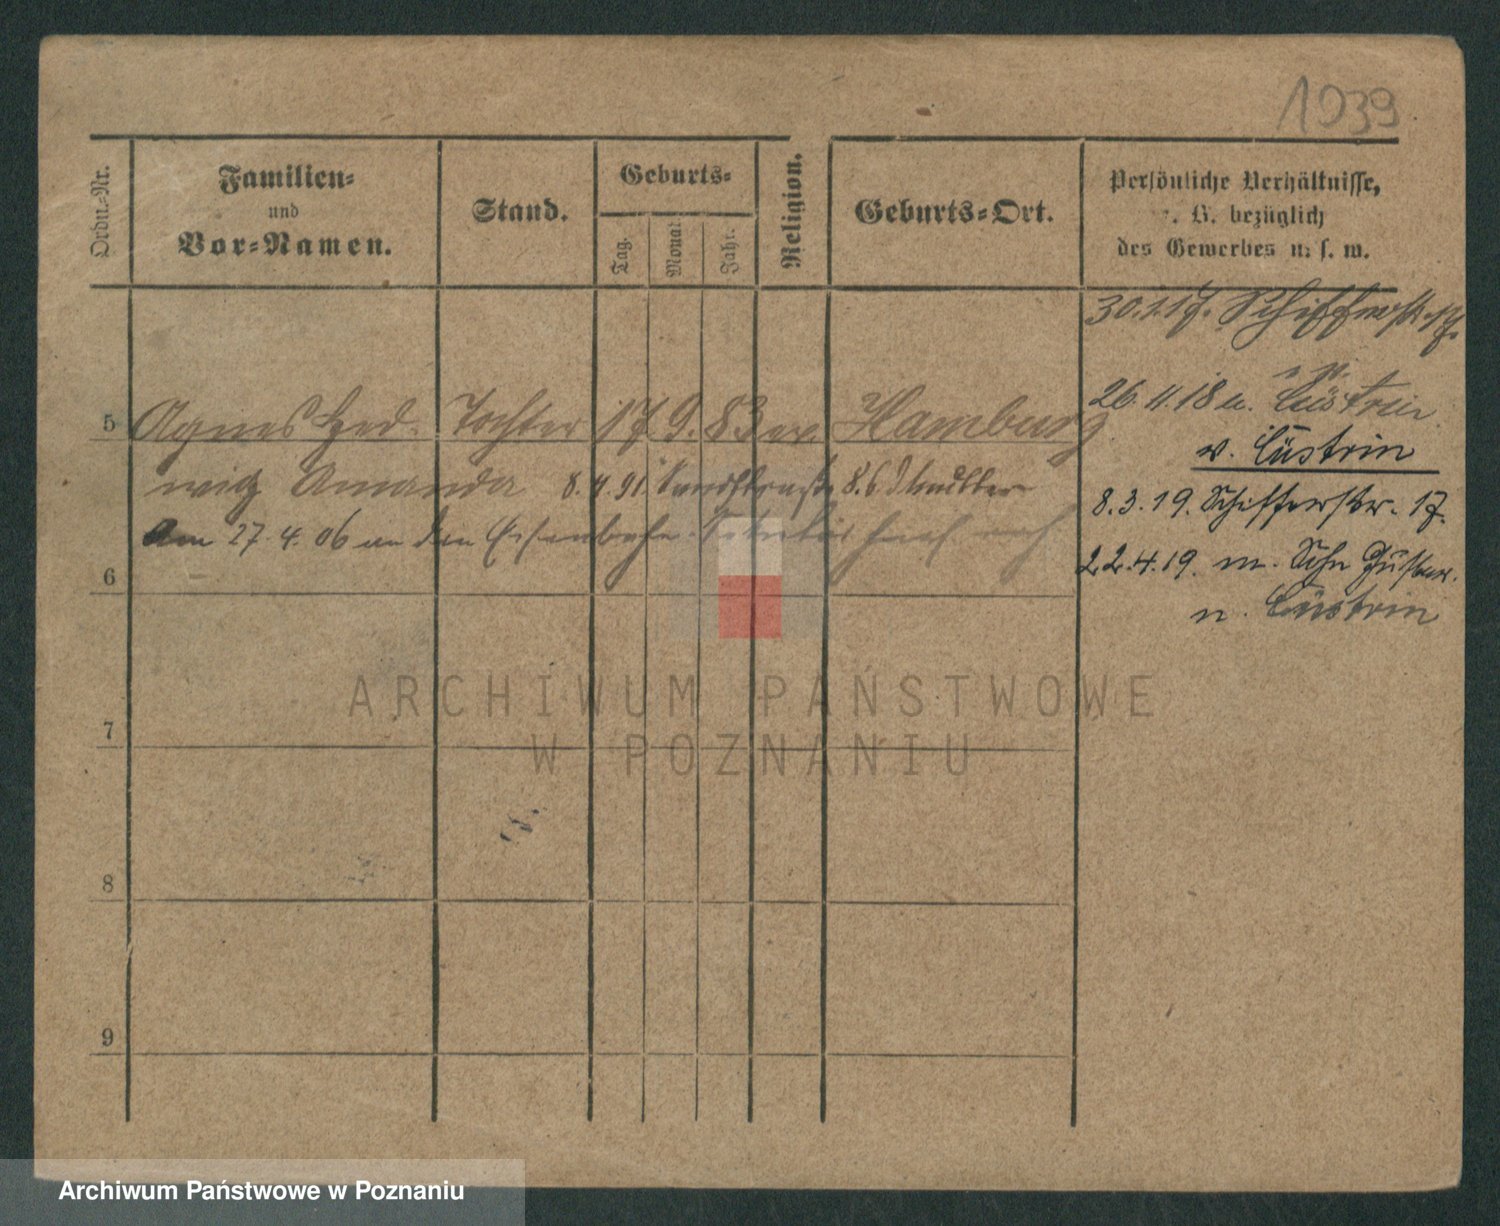 1939
Ordn.-Nr.
Familien-
und
Vor-Namen.
Stand.
Geburts-
Tag.
Monat
Jahr.
Religion.
Geburts-Ort.
Persönliche Verhältnisse,
z. B. bezüglich
des Gewerbes u. s. w.
30.1.17. Schifferstr. 17.
26.11.18 n. Cüstrin
v. Cüstrin
8.3.19. Schifferstr. 17.
22.4.19. m. Sohn
n. Cüstrin
5 Agnes Hed- Tochter 17 9. 83 ev Hamburg
wig Amanda 8.4.91. 8.6
Am 27.4.06 an den
6
7
8
9
ARCHIWUM PAŃSTWOWE
W POZNANIU
Archiwum Państwowe w Poznaniu